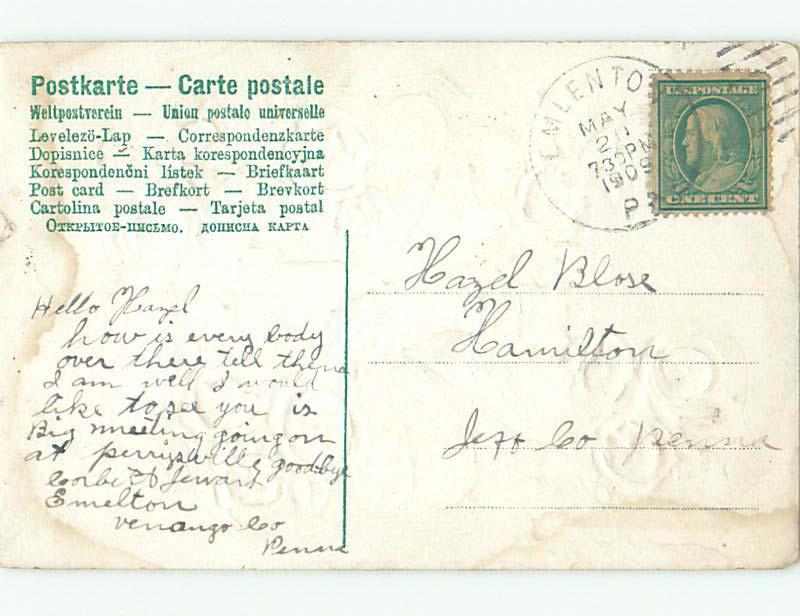 Postkarte — Carte postale
Weltpostverein — Union postale universelle
Levelező-Lap — Correspondenzkarte
Dopisnice — Karta korespondencyjna
Korespondenční lístek — Briefkaart
Post card — Brefkort — Brevkort
Cartolina postale — Tarjeta postal
Открытое-письмо. дописна карта
EMLENTO
MAY
21
730PM
1909
PA
U.S. POSTAGE
ONE CENT
Hazel Blose
Hamilton
Jeff Co Penna
Hello Hazel
how is every body
over there tell them
I am well I would
like to see you is
Big meeting going on
at perrysville good-bye
Corbett Stewart
Emelton
venango Co
Penna